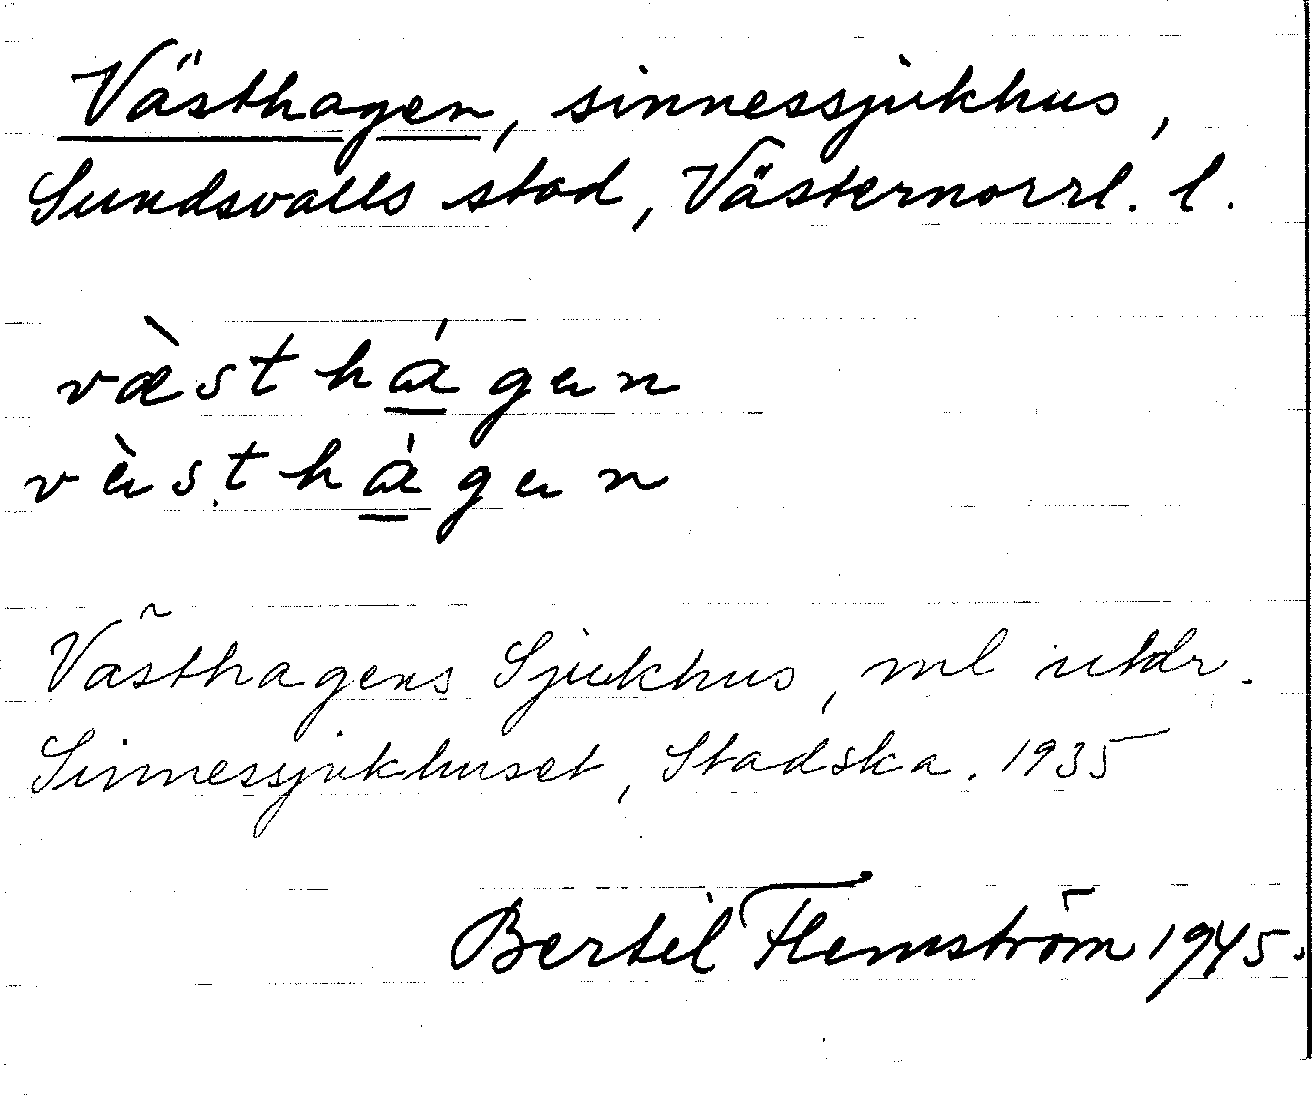 Västhagen, sinnessjukhus,
Sundsvalls stad, Västernorrl. l.
væ̀sthá̱gən
və̀sthá̱gən
Västhagens Sjukhus, ml utdr.
Sinnessjukhuset, Stadska. 1935
Bertil Flemström 1945.